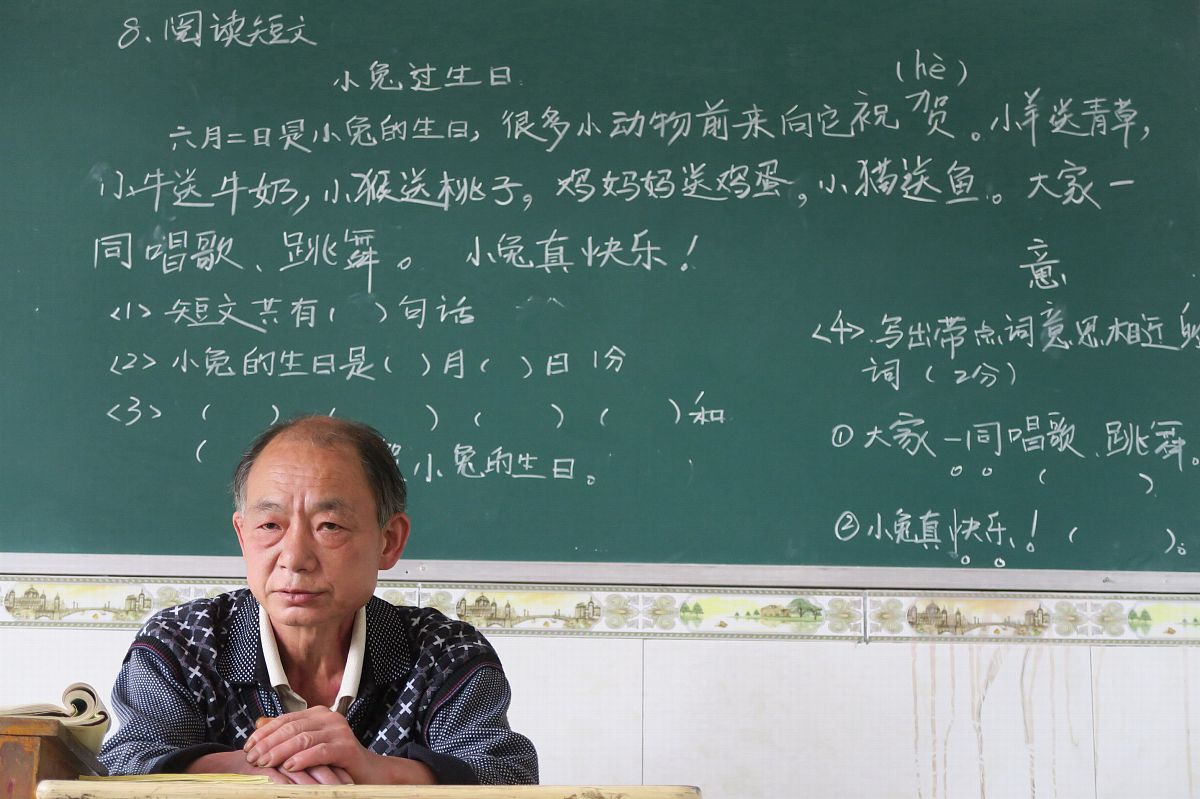 8、阅读短文
小兔过生日
(hè)
六月二日是小兔的生日，很多小动物前来向它祝贺。小羊送青草，
小牛送牛奶，小猴送桃子。鸡妈妈送鸡蛋。小猫送鱼。大家一
同唱歌、跳舞。小兔真快乐！
<1> 短文共有( )句话
<2> 小兔的生日是( )月( )日 1分
<3> ( ) ( ) ( ) ( )和
( 小兔的生日。
意
<4> 写出带点词意思相近的
词（2分）
① 大家一同唱歌、跳舞。
( )
② 小兔真快乐！( )。